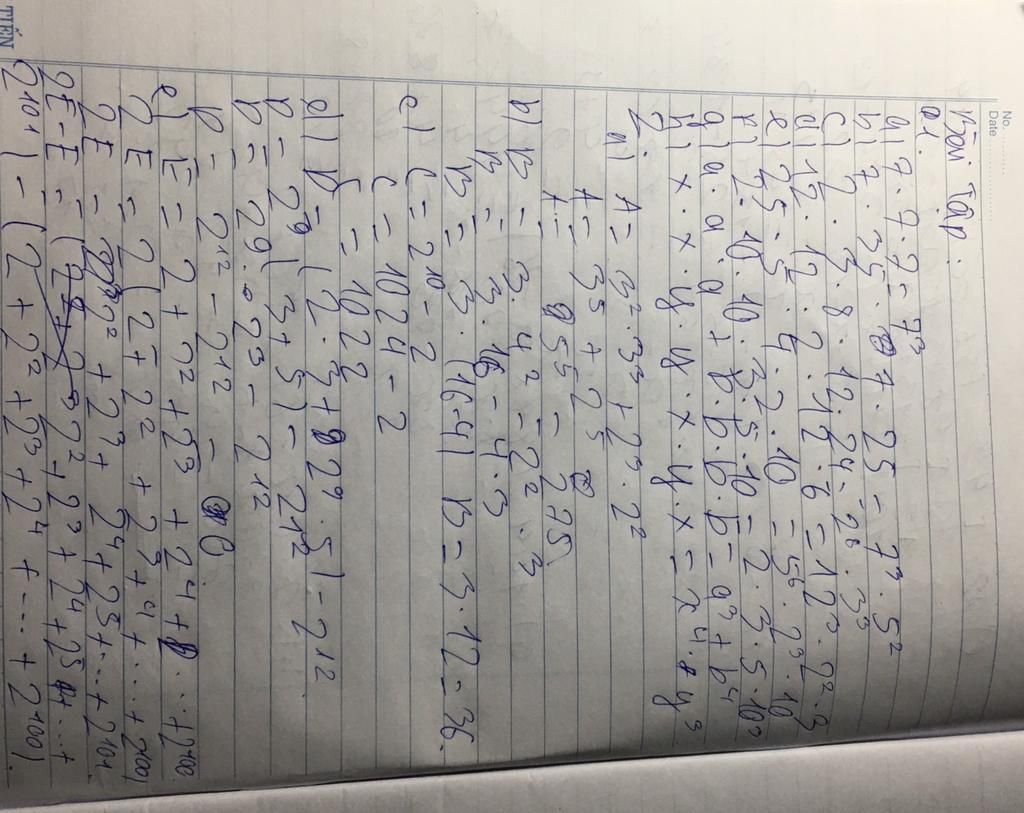 No.
Date
Bài Tập:
a1.
a) 7.7.7 = 7³
b) 7.35.7.25 = 7³.5²
c) 2.3.8.12.24 = 2⁶.3³
d) 12.12.2.12.6 = 12³.2².3
e) 25.5.4.2.10 = 5⁶.2³.10
f) 2.10.10.3.5.10 = 2.3.5.10³
g) a.a.a + b.b.b.b = a³ + b⁴
h) x.x.y.y.x.y.x = x⁴.y³
2.
a) A = 3².3³ + 2³.2²
A = 3⁵ + 2⁵
A = 955 = 275
b) B = 3.4² – 2².3
B = 3.16 – 4.3
B = 3.(16-4) B = 3.12 = 36.
c) C = 2¹⁰ – 2
C = 1024 – 2
C = 1022
d) D = (2.3 + 2⁹.5) – 2¹²
D = 2⁹(3+5) – 2¹²
D = 2⁹.2³ – 2¹²
D = 2¹² – 2¹² = 0
e) E = 2 + 2² + 2³ + 2⁴ + ... + 2¹⁰⁰
2E = 2(2 + 2² + 2³ + ⁴ + .... + 2¹⁰⁰)
2E = 2² + 2³ + 2⁴ + 2⁵ + ... + 2¹⁰¹.
2E – E = (2² + 2³ + 2⁴ + 2⁵ + .... +
2¹⁰¹) – (2 + 2² + 2³ + 2⁴ + .... + 2¹⁰⁰).
TIẾN